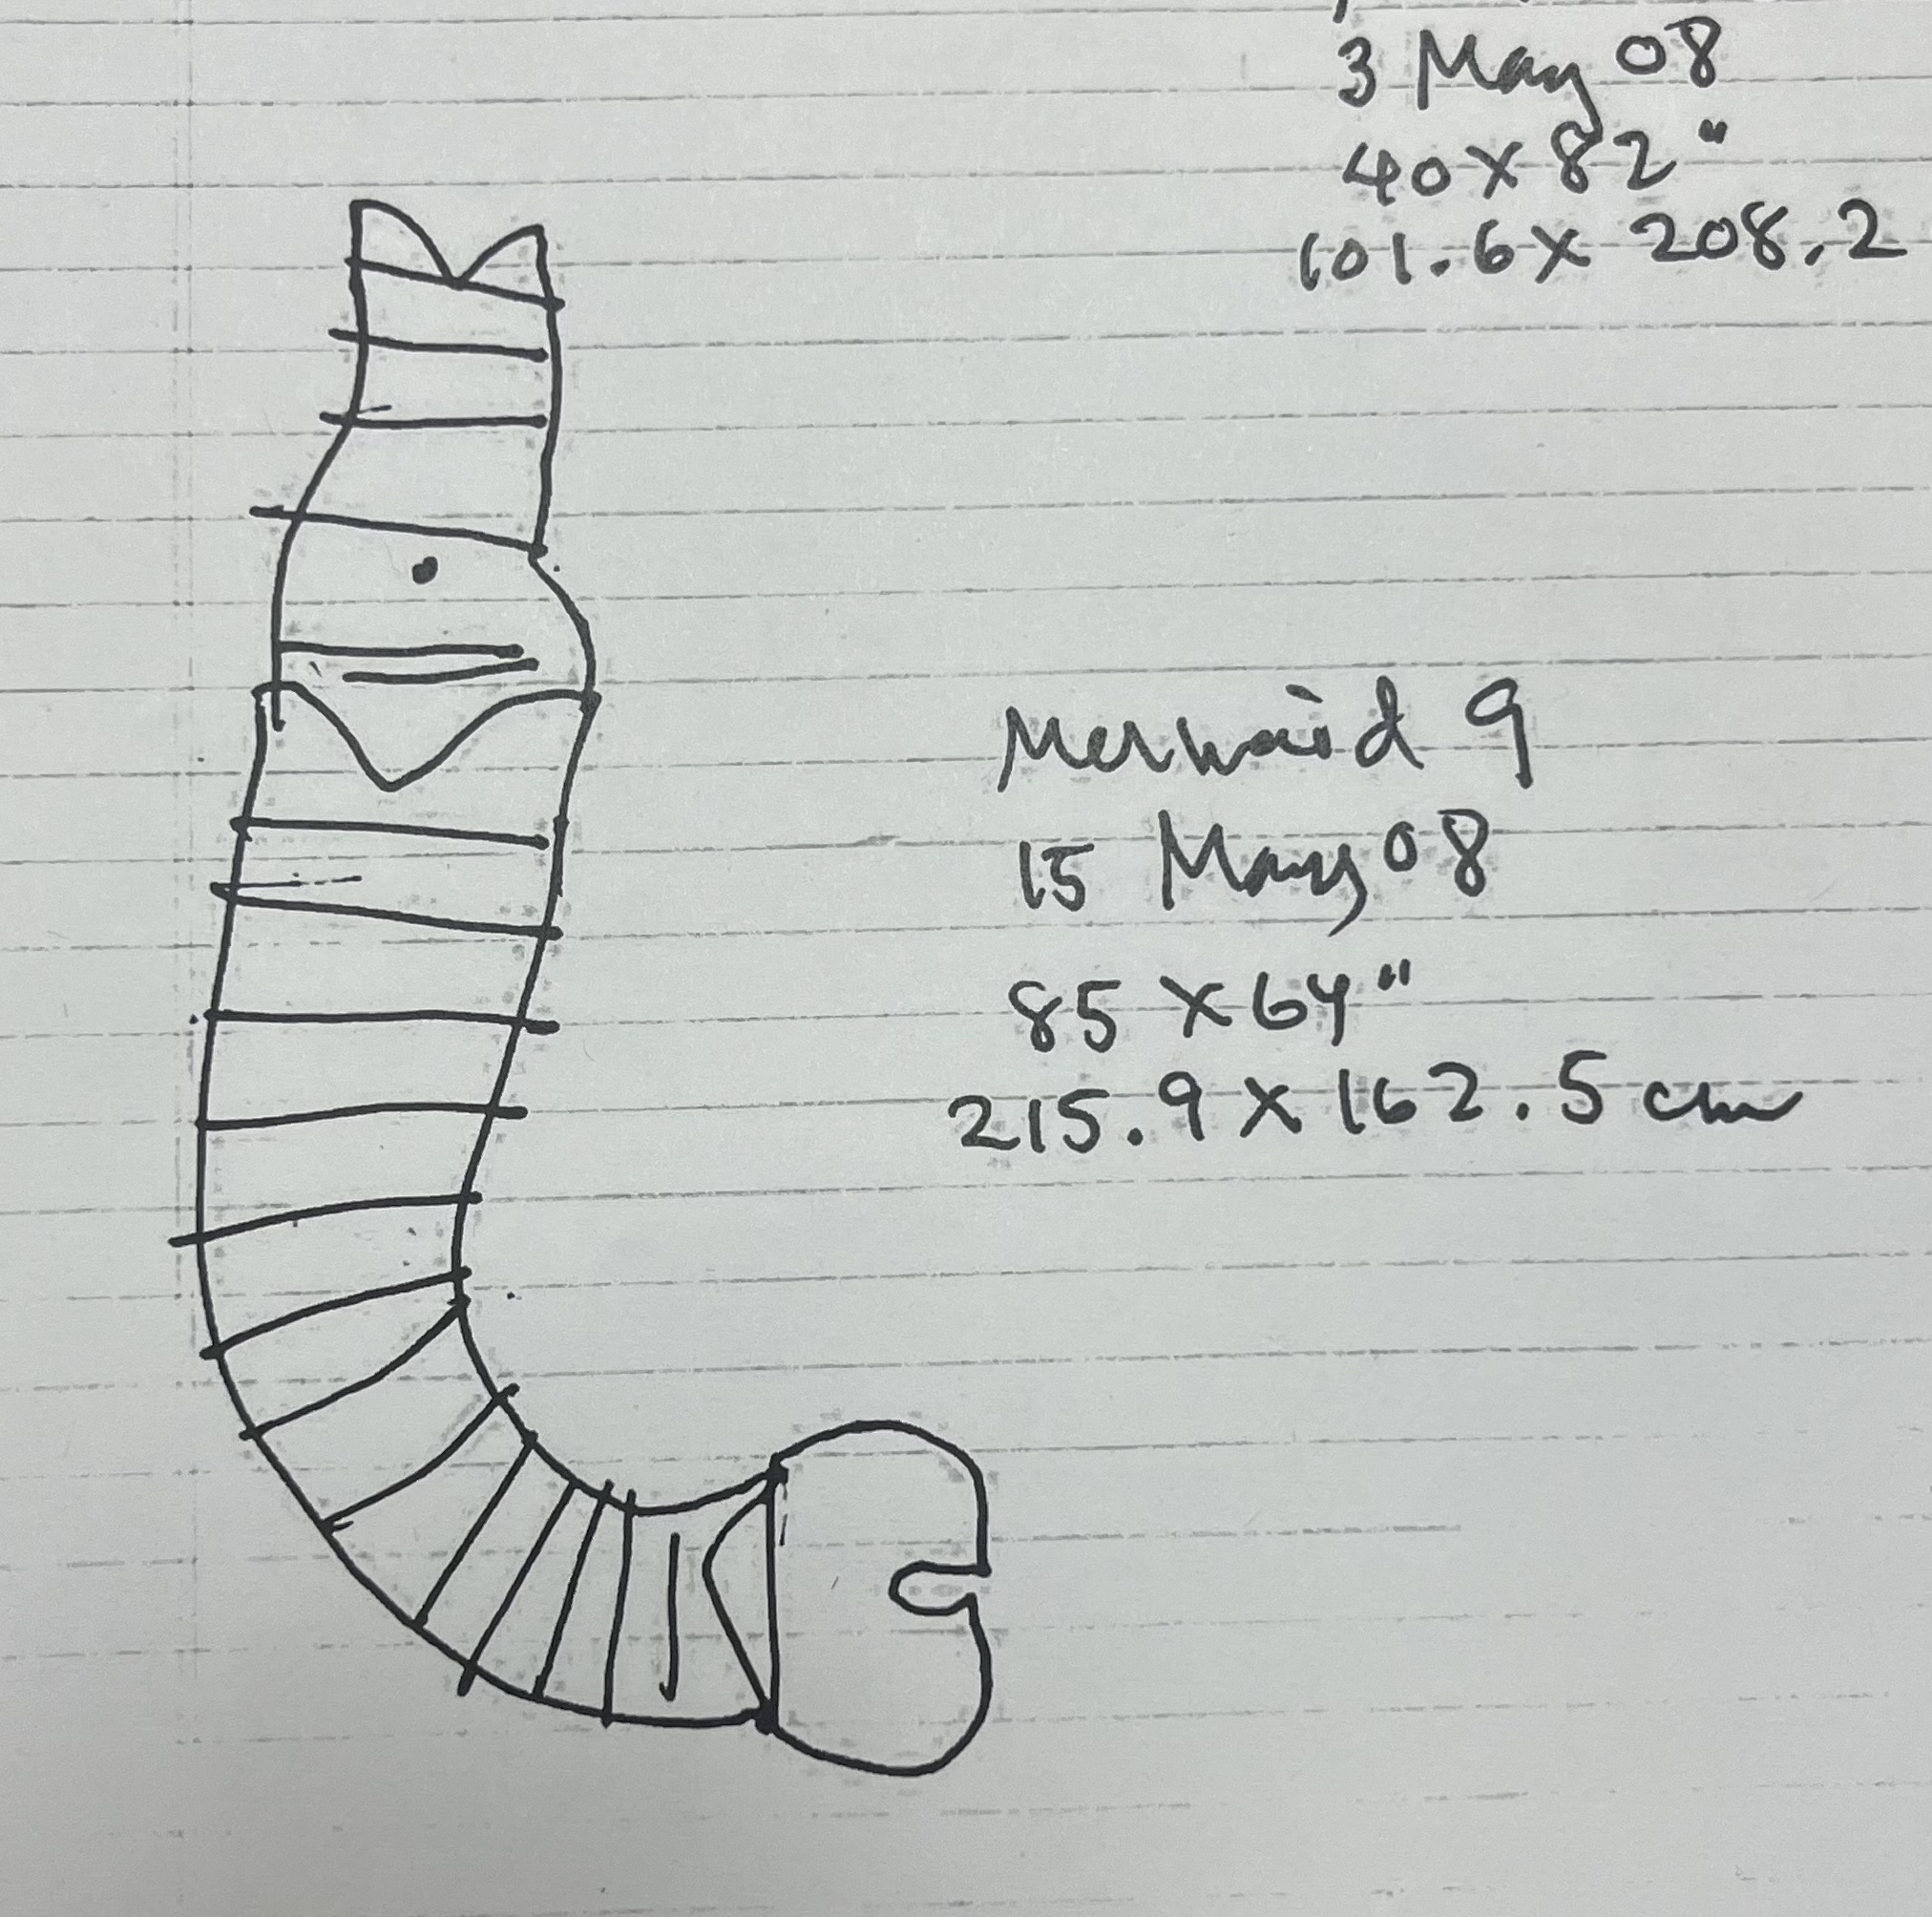 3 May 08
40 x 82"
101.6 x 208.2
Mermaid 9
15 May 08
85 x 64"
215.9 x 162.5 cm